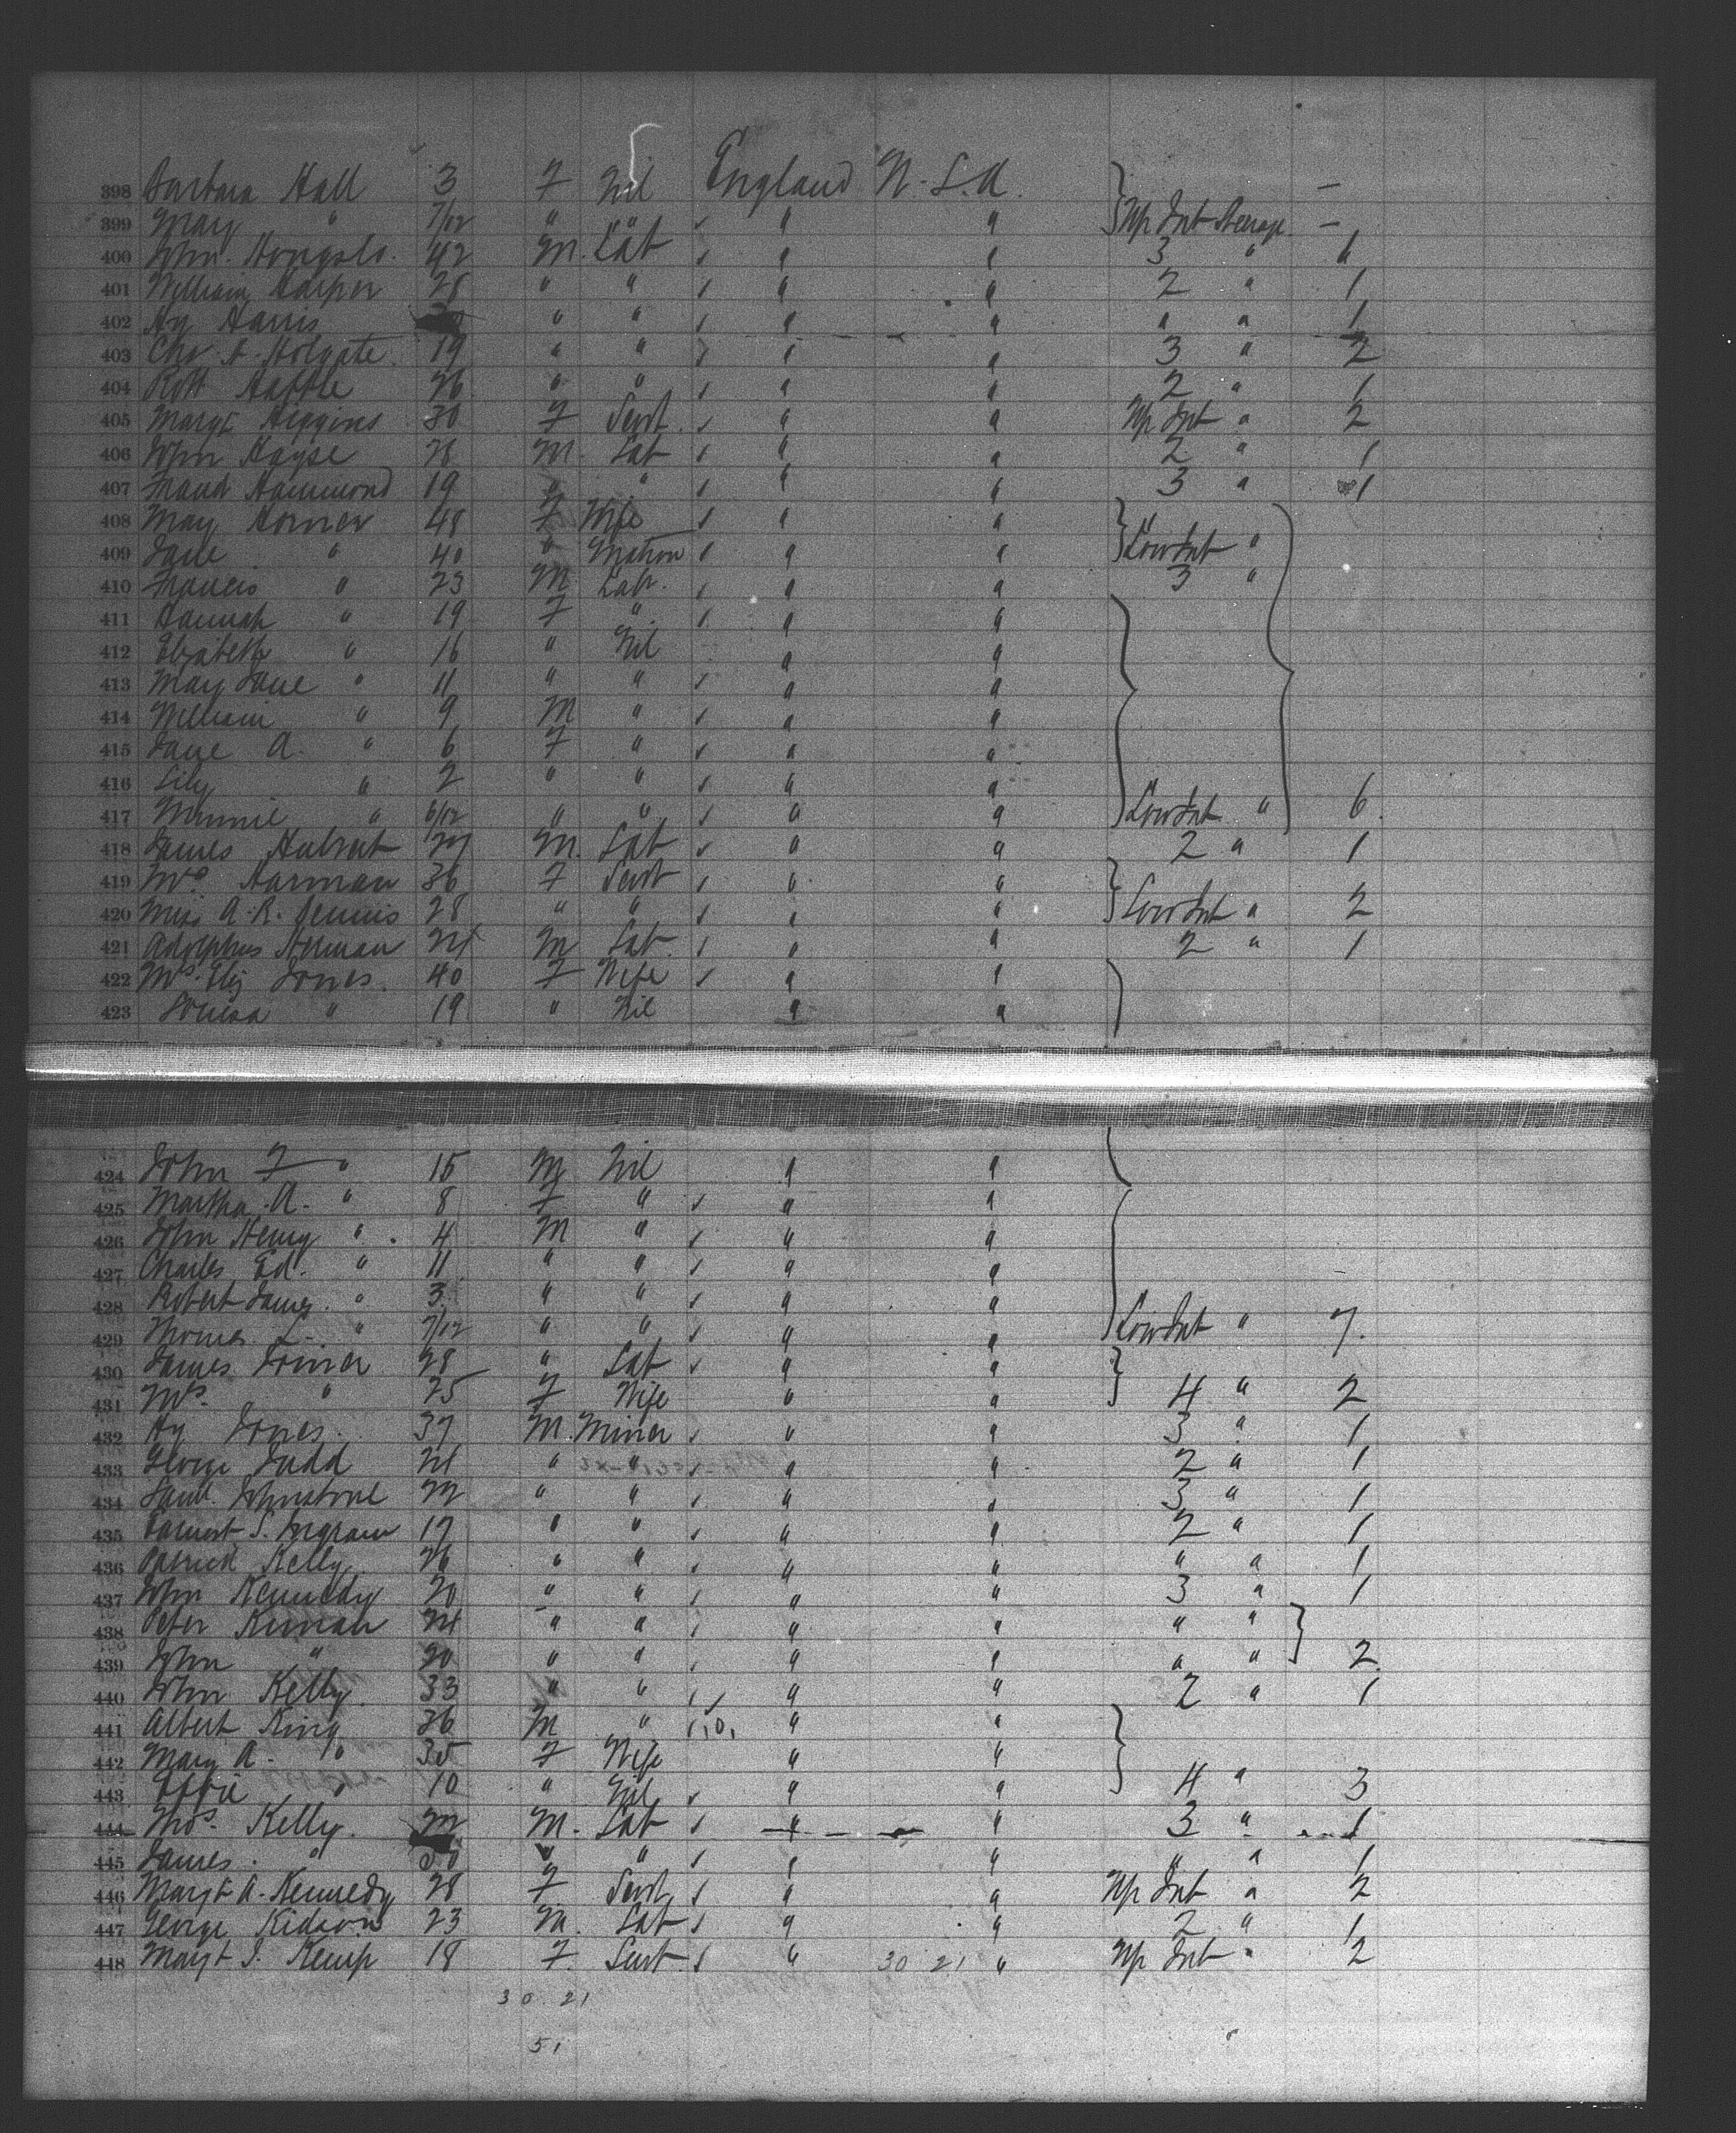 398 Barbara Hall 3 F Nil England U.S.A. –
399 Mary " 7/12 " " " " Up Int Steerage –
400 John 42 M. Lab " " 3 "
401 William Harper 28 " " " " 2 " 1
402 Hy Harris " " " " " " 1
403 Chs A. Holgate 19 " " " " 3 " 2
404 Robt 26 " " " " 2 " 1
405 Margt Higgins 30 F Servt. " " Up Int " 2
406 John Hayse 28 M. Lab " " 2 " 1
407 Hammond 19 " " " " 3 " 1
408 May Horner 48 F Wife " "
409 Jane " 40 " Matron " " Low Int "
410 Francis " 23 M Labr. " " 3 "
411 Hannah " 19 F " " "
412 Elizabeth " 16 " Nil " "
413 May Jane " 11 " " " "
414 William " 9 M " " "
415 Jane A. " 6 F " " "
416 Lily " 2 " " " "
417 Minnie " 6/12 " " " " Low Int " 6.
418 James M. Lab " " 2 " 1
419 Harman 36 F Servt " "
420 Miss A. R. Dennis 28 " " " " Low Int " 2
421 Adolphus 24 M Lab. " " 2 " 1
422 Mrs. Eliz Jones. 40 F Wife " "
423 Louisa " 19 " Nil " "
424 John F " 15 M Nil " "
425 Martha A. " 8 F " " "
426 John Henry " 4 M " " "
427 Charles Ed. " 11 " " " "
428 Robert James. " 3 " " " "
429 Thomas L. " 7/12 " " " " Low Int " 7.
430 James 28 " Lab " "
431 Mrs. " 25 F Wife " " 4 " 2
432 Hy Jones. 37 M. Miner " " 3 " 1
433 George Judd 24 " " " " 2 " 1
434 Saml. Johnstone 22 " " " " 3 " 1
435 Earnest S. Ingram 19 " " " " 2 " 1
436 Patrick Kelly 26 " " " " " " 1
437 John Kennedy 20 " " " " 3 " 1
438 Peter 24 " " " " " "
439 John " 20 " " " " " " 2.
440 John Kelly. 33 " " " " 2 " 1
441 Albert King 36 M " " "
442 Mary A. " 35 F Wife " "
443 Effie " 10 " Nil " " 4 " 3
444 Thos. Kelly. 22 M. Lab " " 3 " 1
445 James. " " " " " " " 1
446 Margt A. Kennedy 28 F Servt " " Up Int " 2
447 George Kidson 23 M. Lab " " 2 " 1
448 Margt J. Kemp 18 F. Servt. " 30 21 " Up Int " 2
30 21
51